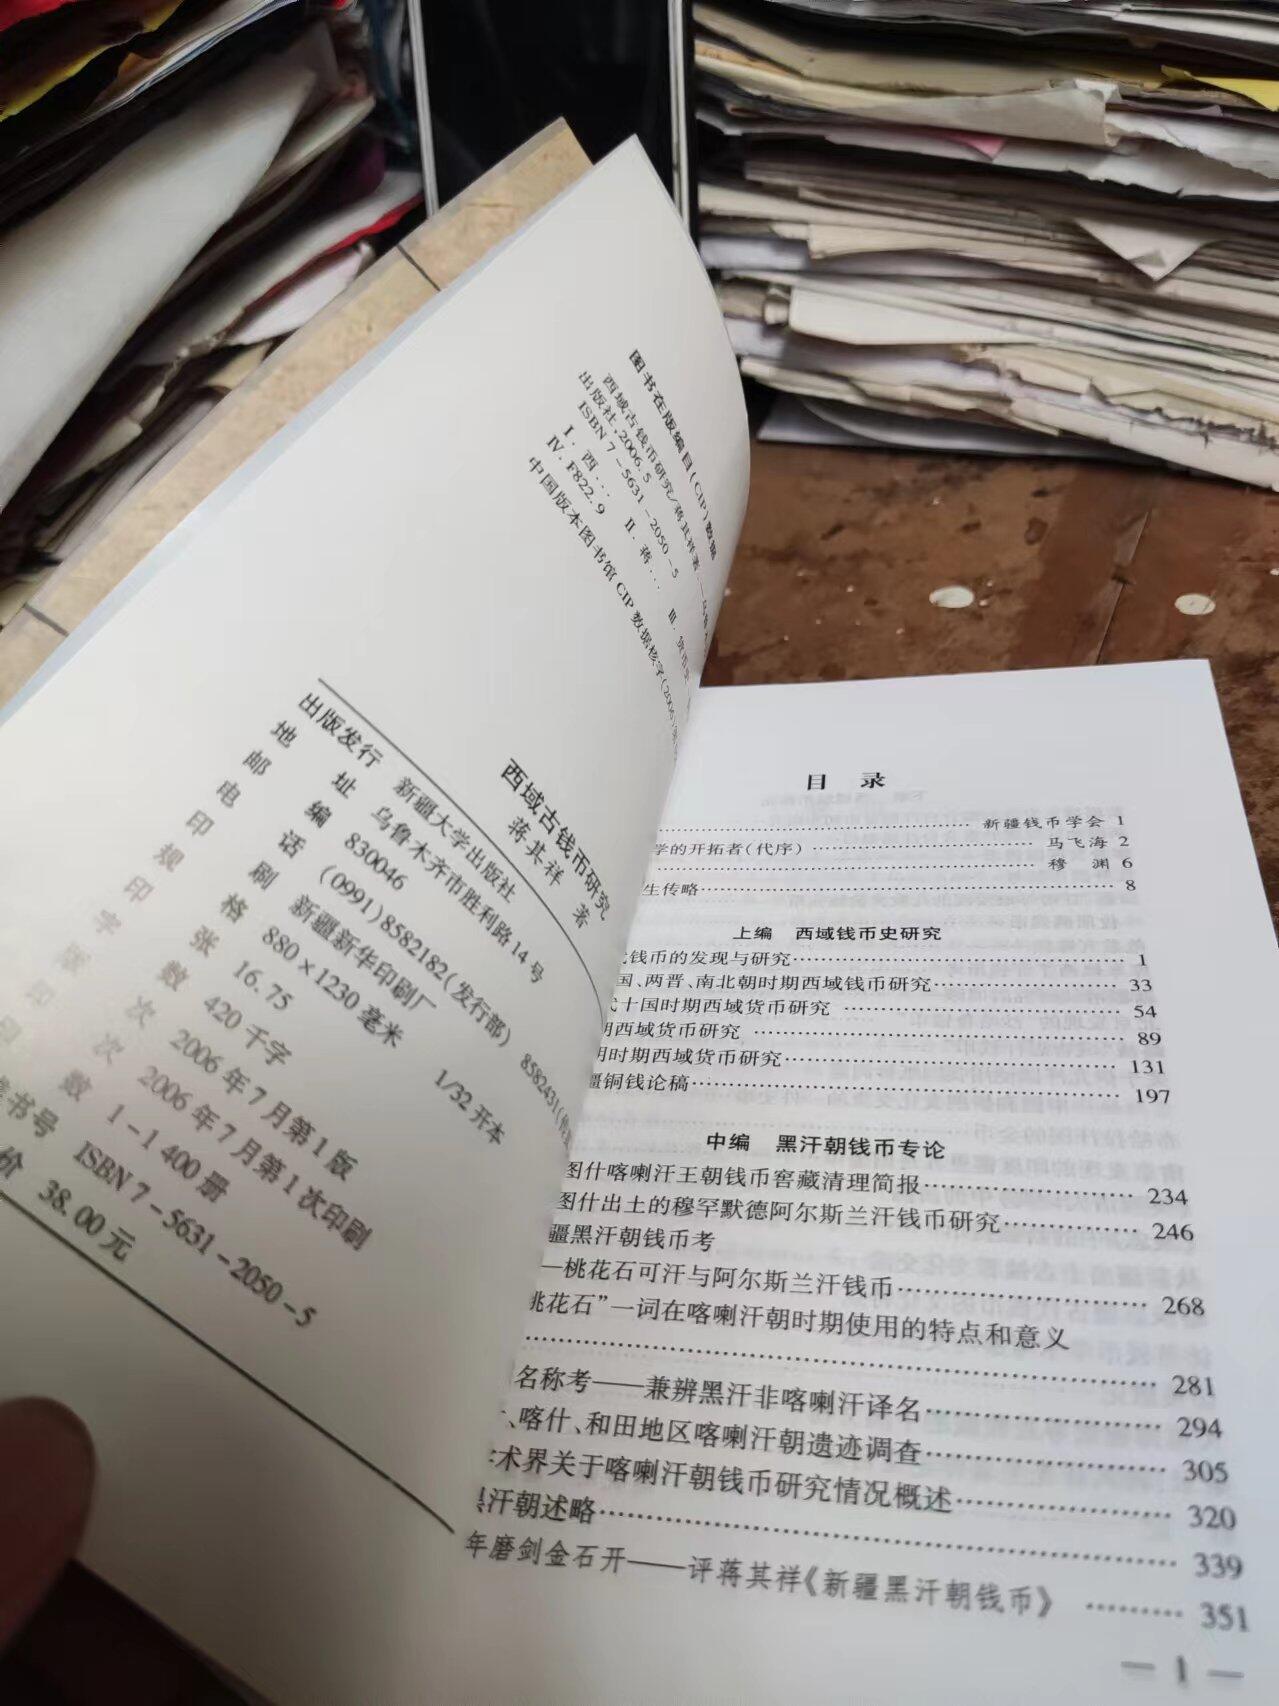 图书在版编目(CIP)数据
西域古钱币研究/蒋其祥著.—乌鲁木
出版社,2006.5
ISBN 7-5631-2050-5
Ⅰ.西… Ⅱ.蒋… Ⅲ.货币学
Ⅳ.F822.9
中国版本图书馆CIP数据核字(2006)第
西域古钱币研究
蒋其祥 著
出版发行 新疆大学出版社
地 址 乌鲁木齐市胜利路14号
邮 编 830046
电 话 (0991)8582182(发行部) 8582431(
印 刷 新疆新华印刷厂
规 格 880×1230毫米 1/32开本
印 张 16.75
字 数 420千字
版 次 2006年7月第1版
印 次 2006年7月第1次印刷
印 数 1-1 400册
书号 ISBN 7-5631-2050-5
价 38.00元
目 录
新疆钱币学会 1
学的开拓者(代序) 马飞海 2
穆 渊 6
生传略 8
上编 西域钱币史研究
钱币的发现与研究 1
国、两晋、南北朝时期西域钱币研究 33
代十国时期西域货币研究 54
期西域货币研究 89
明时期西域货币研究 131
疆铜钱论稿 197
中编 黑汗朝钱币专论
图什喀喇汗王朝钱币窖藏清理简报 234
图什出土的穆罕默德阿尔斯兰汗钱币研究 246
疆黑汗朝钱币考
—桃花石可汗与阿尔斯兰汗钱币 268
桃花石”一词在喀喇汗朝时期使用的特点和意义
281
名称考——兼辨黑汗非喀喇汗译名 294
、喀什、和田地区喀喇汗朝遗迹调查 305
术界关于喀喇汗朝钱币研究情况概述 320
汗朝述略 339
年磨剑金石开——评蒋其祥《新疆黑汗朝钱币》 351
— 1 —